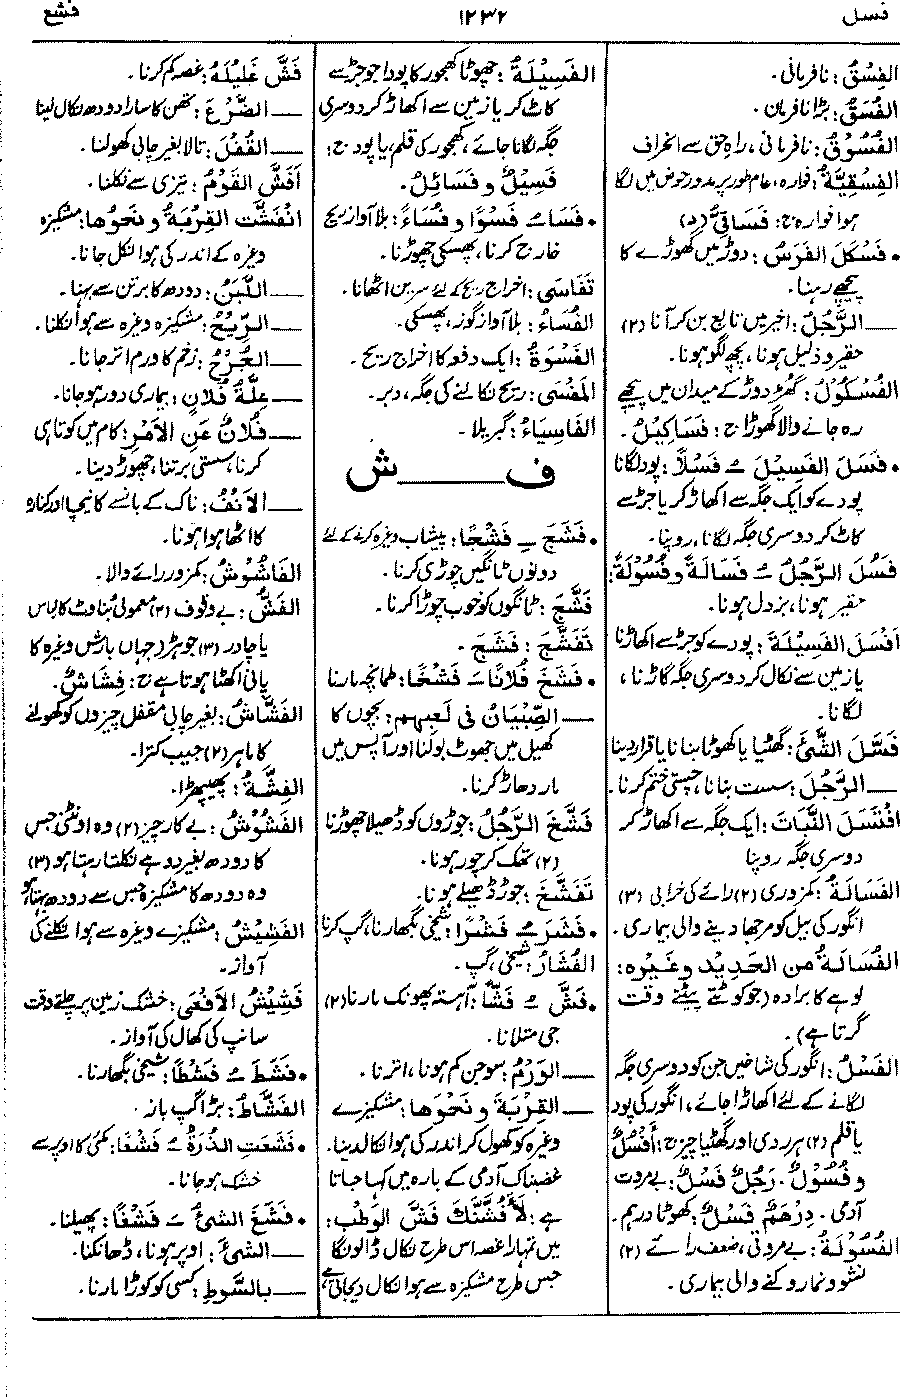 فسل
۱۲۳۲
فشع
الفِسْقُ: نافرمانی۔
الفُسَقُ: بڑا نافرمان۔
الفُسُوْقُ: نافرمانی، راہِ حق سے انحراف
الفِسْقِيَّةُ: فوارہ، عام طور پر مدور حوض میں لگا
ہوا فوارہ ج: فَسَاقِيُّ (د)
• فَسْكَلَ الفَرَسُ: دوڑ میں گھوڑے کا
پیچھے رہنا۔
— الرَّجُلُ: اخیر میں تابع بن کر آنا (۲)
حقیر و ذلیل ہونا، پچھ لگو ہونا۔
الفُسْكُوْلُ: گھڑ دوڑ کے میدان میں پیچھے
رہ جانے والا گھوڑا ج: فَسَاكِيْلُ۔
• فَسَلَ الفَسِيْلَ ـُ فَسْلاً: پودا لگانا
پودے کو ایک جگہ سے اکھاڑ کر یا جڑ سے
کاٹ کر دوسری جگہ لگانا، روپنا۔
فَسُلَ الرَّجُلُ ـُ فَسَالَةً و فُسُوْلَةً:
حقیر ہونا، بزدل ہونا۔
اَفْسَلَ الفَسِيْلَةَ: پودے کو جڑ سے اکھاڑنا
یا زمین سے نکال کر دوسری جگہ گاڑنا،
لگانا۔
فَسَّلَ الشَّيْئَ: گھٹیا یا کھوٹا بنانا یا قرار دینا
— الرَّجُلَ: سست بنانا، چستی ختم کرنا۔
افْتَسَلَ النَّبَاتَ: ایک جگہ سے اکھاڑ کر
دوسری جگہ روپنا
الفَسَالَةُ: کمزوری (۲) رائے کی خرابی (۳)
انگور کی بیل کو مرجھا دینے والی بیماری۔
الفُسَالَةُ من الحَدِيْدِ وغَيْرِه:
لوہے کا برادہ (جو کوٹتے پیٹتے وقت
گرتا ہے)۔
الفَسْلُ: انگور کی شاخیں جن کو دوسری جگہ
لگانے کے لئے اکھاڑا جائے، انگور کی پود
یا قلم (۲) ہر ردی اور گھٹیا چیز ج: اَفْسُلٌ
و فُسُوْلٌ۔ رَجُلٌ فَسْلٌ: بے مروت
آدمی۔ دِرْهَمٌ فَسْلٌ: کھوٹا درہم۔
الفُسُوْلَةُ: بے مروتی، ضعف رائے (۲)
نشو و نما روکنے والی بیماری۔
الفَسِيْلَةُ: چھوٹا کھجور کا پودا جو جڑ سے
کاٹ کر یا زمین سے اکھاڑ کر دوسری
جگہ لگانا جائے، کھجور کی قلم، یا پود ج:
فَسِيْلٌ و فَسَائِلُ۔
• فَسَا ـُ فَسْوًا و فُسَاءً: بلا آواز ریح
خارج کرنا، پھسکی چھوڑنا۔
تَفَاسَى: اخراج ریح کے لئے سرین اٹھانا۔
الفُسَاءُ: بلا آواز گوز، پھسکی۔
الفَسْوَةُ: ایک دفعہ کا اخراج ریح۔
المَفْسَى: ریح نکالنے کی جگہ، دبر۔
الفَاسِيَاءُ: گبریلا۔
ف — ش
• فَشَجَ ـِ فَشْجًا: پیشاب وغیرہ کرنے کے لئے
دونوں ٹانگیں چوڑی کرنا۔
فَشَّجَ: ٹانگوں کو خوب چوڑا کرنا۔
تَفَشَّجَ: فَشَجَ۔
• فَشَخَ فُلَانًا ـَ فَشْخًا: طمانچہ مارنا
— الصِّبْيَانُ فى لَعِبِهِم: بچوں کا
کھیل میں جھوٹ بولنا اور آپس میں
مار دھاڑ کرنا۔
فَشَّخَ الرَّجُلُ: جوڑوں کو ڈھیلا چھوڑنا
(۲) تھک کر چور ہونا۔
تَفَشَّخَ: جوڑ ڈھیلے ہونا۔
• فَشَرَ ـُ فَشْرًا: شیخی بگھارنا، گپ کرنا
الفُشَارُ: شیخی، گپ۔
• فَشَّ ـُ فَشًّا: آہستہ پھونک مارنا (۲)
جی متلانا۔
— الوَرَمُ: سوجن کم ہونا، اترنا۔
— القِرْبَةَ و نَحْوَها: مشکیزے
وغیرہ کو کھول کر اندر کی ہوا نکال دینا۔
غضبناک آدمی کے بارہ میں کہا جاتا
ہے: لَأَفُشَّنَّكَ فَشَّ الوَطْبِ:
میں تمہارا غصہ اس طرح نکال ڈالونگا
جس طرح مشکیزہ سے ہوا نکال دیجاتی ہے
فَشَّ غَلِيْلَهُ: غصہ کم کرنا۔
— الضَّرْعَ: تھن کا سارا دودھ نکال لینا
— القُفْلَ: تالا بغیر چابی کھولنا۔
اَفَشَّ القَوْمُ: تیزی سے نکلنا۔
انْفَشَّت القِرْبَةُ و نَحْوُها: مشکیزہ
وغیرہ کے اندر کی ہوا نکل جانا۔
— اللَّبَنُ: دودھ کا برتن سے بہنا۔
— الرِّيْحُ: مشکیزہ وغیرہ سے ہوا نکلنا۔
— الجُرْحُ: زخم کا ورم اتر جانا۔
— عِلَّةُ فُلَانٍ: بیماری دور ہو جانا۔
— فُلَانٌ عَنِ الاَمْرِ: کام میں کوتاہی
کرنا، سستی برتنا، چھوڑ دینا۔
— الاَنْفُ: ناک کے بانسے کا نیچا اور کنارہ
کا اٹھا ہوا ہونا۔
الفَاشُوْشُ: کمزور رائے والا۔
الفَشُّ: بے وقوف (۲) معمولی بناوٹ کا لباس
یا چادر (۳) جوہڑ (جہاں بارش وغیرہ کا
پانی اکٹھا ہوتا ہے) ج: فِشَاشٌ۔
الفَشَّاشُ: بغیر چابی مقفل چیزوں کو کھولنے
کا ماہر (۲) جیب کترا۔
الفِشَّةُ: پھیپھڑا۔
الفَشُوْشُ: بے کار چیز (۲) وہ اونٹنی جس
کا دودھ بغیر دوہے نکلتا رہتا ہو (۳)
وہ دودھ کا مشکیزہ جس سے دودھ بہتا ہو
الفَشِيْشُ: مشکیزے وغیرہ سے ہوا نکلنے کی
آواز۔
فَشِيْشُ الاَفْعَى: خشک زمین پر چلتے وقت
سانپ کی کھال کی آواز۔
• فَشَطَ ـُ فَشْطًا: شیخی بگھارنا۔
الفَشَّاطُ: بڑا گپ باز۔
• فَشَعَتِ الذُّرَةُ ـُ فَشْعًا: مکئی کا اوپر سے
خشک ہو جانا۔
• فَشَغَ الشئُ ـَ فَشْغًا: پھیلنا۔
— الشئَ: اوپر ہونا، ڈھانکنا۔
— بالسَّوطِ: کسی کو کوڑا مارنا۔